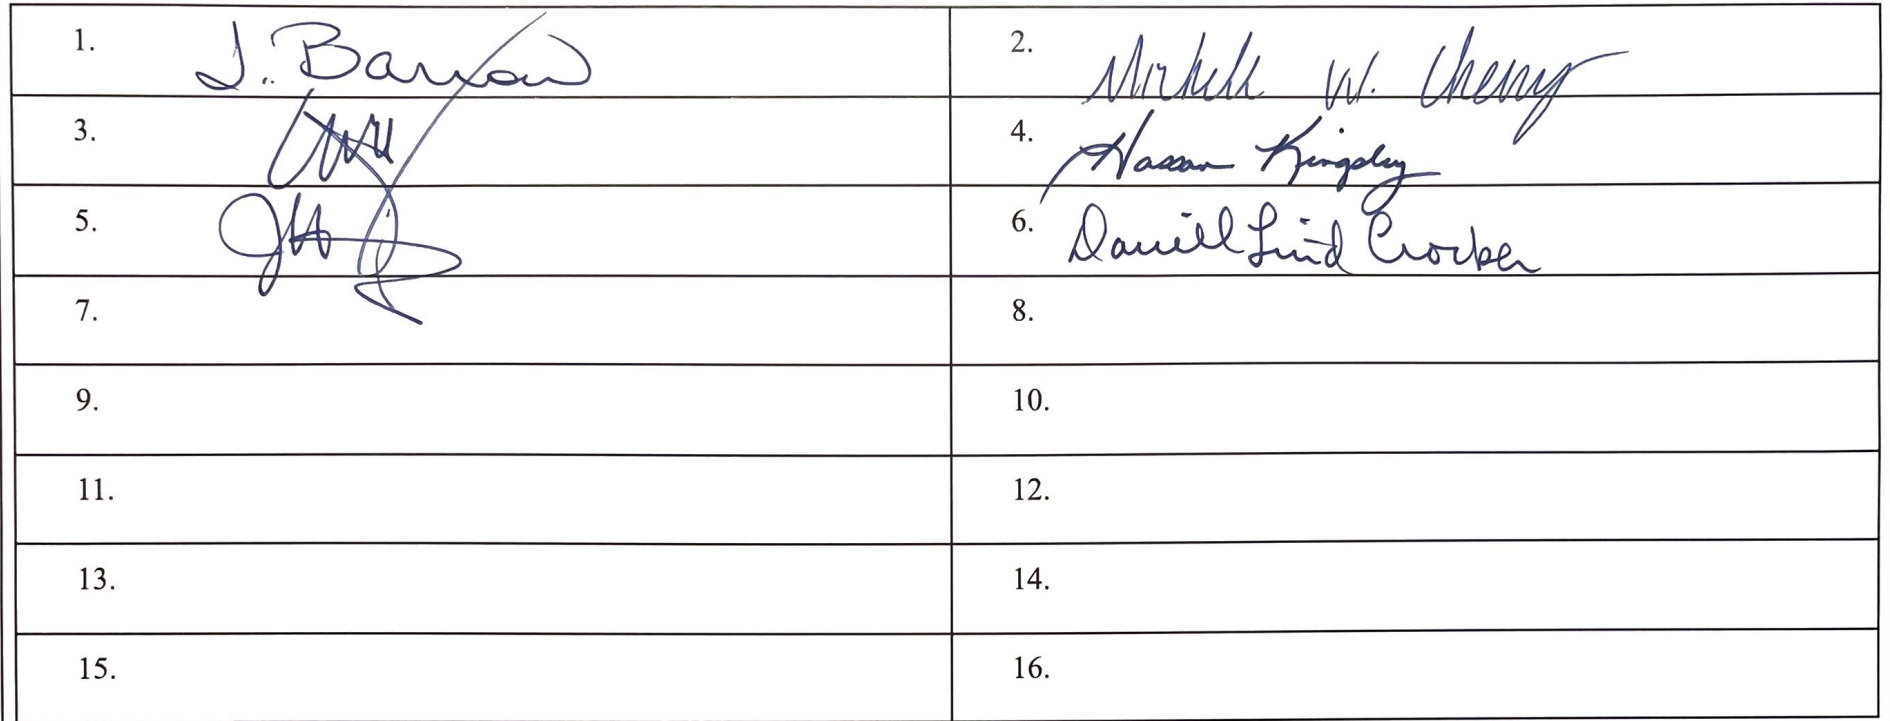 1. J. Barrow 2. Michelle W. Cherry
3. 4. Hassan Kingsley
5. 6. Daniell Lind Crocker
7. 8.
9. 10.
11. 12.
13. 14.
15. 16.